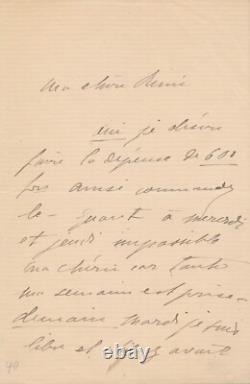 Ma chère Renée
oui je désire
faire la dépense de 600
frs ainsi commandez
le - Quant à mercredi
et jeudi impossible
ma chérie car toute
ma semaine est prise -
demain mardi je suis
libre et avant